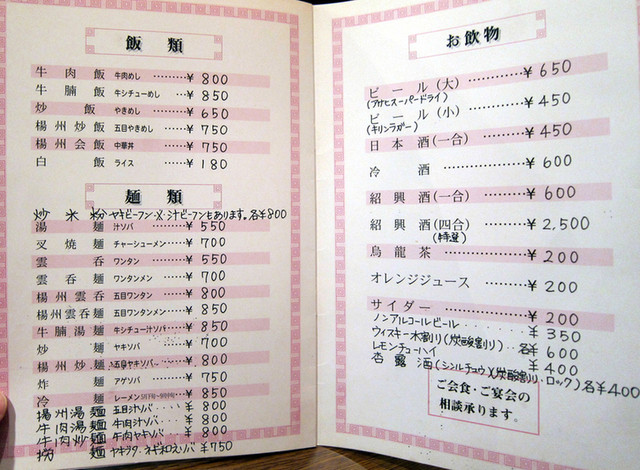 飯類
牛肉飯 牛肉めし ………¥ 800
牛腩飯 牛シチューめし …¥ 850
炒飯 やきめし ………¥ 650
楊州炒飯 五目やきめし ……¥ 750
楊州会飯 中華丼 ………¥ 750
白飯 ライス ………¥ 180
麺類
炒米粉 ヤキビーフン・又・汁ビーフンもあります。各¥800
湯麺 汁ソバ ………¥ 550
叉焼麺 チャーシューメン …¥ 700
雲呑 ワンタン ………¥ 550
雲呑麺 ワンタンメン ……¥ 700
楊州雲呑 五目ワンタン ……¥ 800
楊州雲呑麺 五目ワンタンメン …¥ 850
牛腩湯麺 牛シチュー汁ソバ …¥ 850
炒麺 ヤキソバ ………¥ 700
楊州炒麺 五目ヤキソバ ……¥ 800
炸麺 アゲソバ ………¥ 750
冷麺 レーメン ………¥ 850
揚州湯麺 五目汁ソバ ¥ 800
牛肉湯麺 牛肉汁ソバ ¥ 800
牛肉炒麺 牛肉ヤキソバ ¥ 800
撈麺 ¥750
お飲物
ビール(大) …………¥ 650
(アサヒスーパードライ)
ビール(小) …………¥ 450
(キリンラガー)
日本酒(一合) …………¥ 450
冷酒 …………¥ 600
紹興酒(一合) …………¥ 600
紹興酒(四合) …………¥ 2,500
(特登)
烏龍茶 …………¥ 200
オレンジジュース …………¥ 200
サイダー …………¥ 200
ノンアルコールビール ‥‥‥ ¥ 350
ウィスキー水割り(炭酸割り) 各¥ 600
レモンチューハイ ¥ 400
杏露酒(シンルチュウ)(炭酸割り・ロック)各¥400
ご会食・ご宴会の
相談承ります。